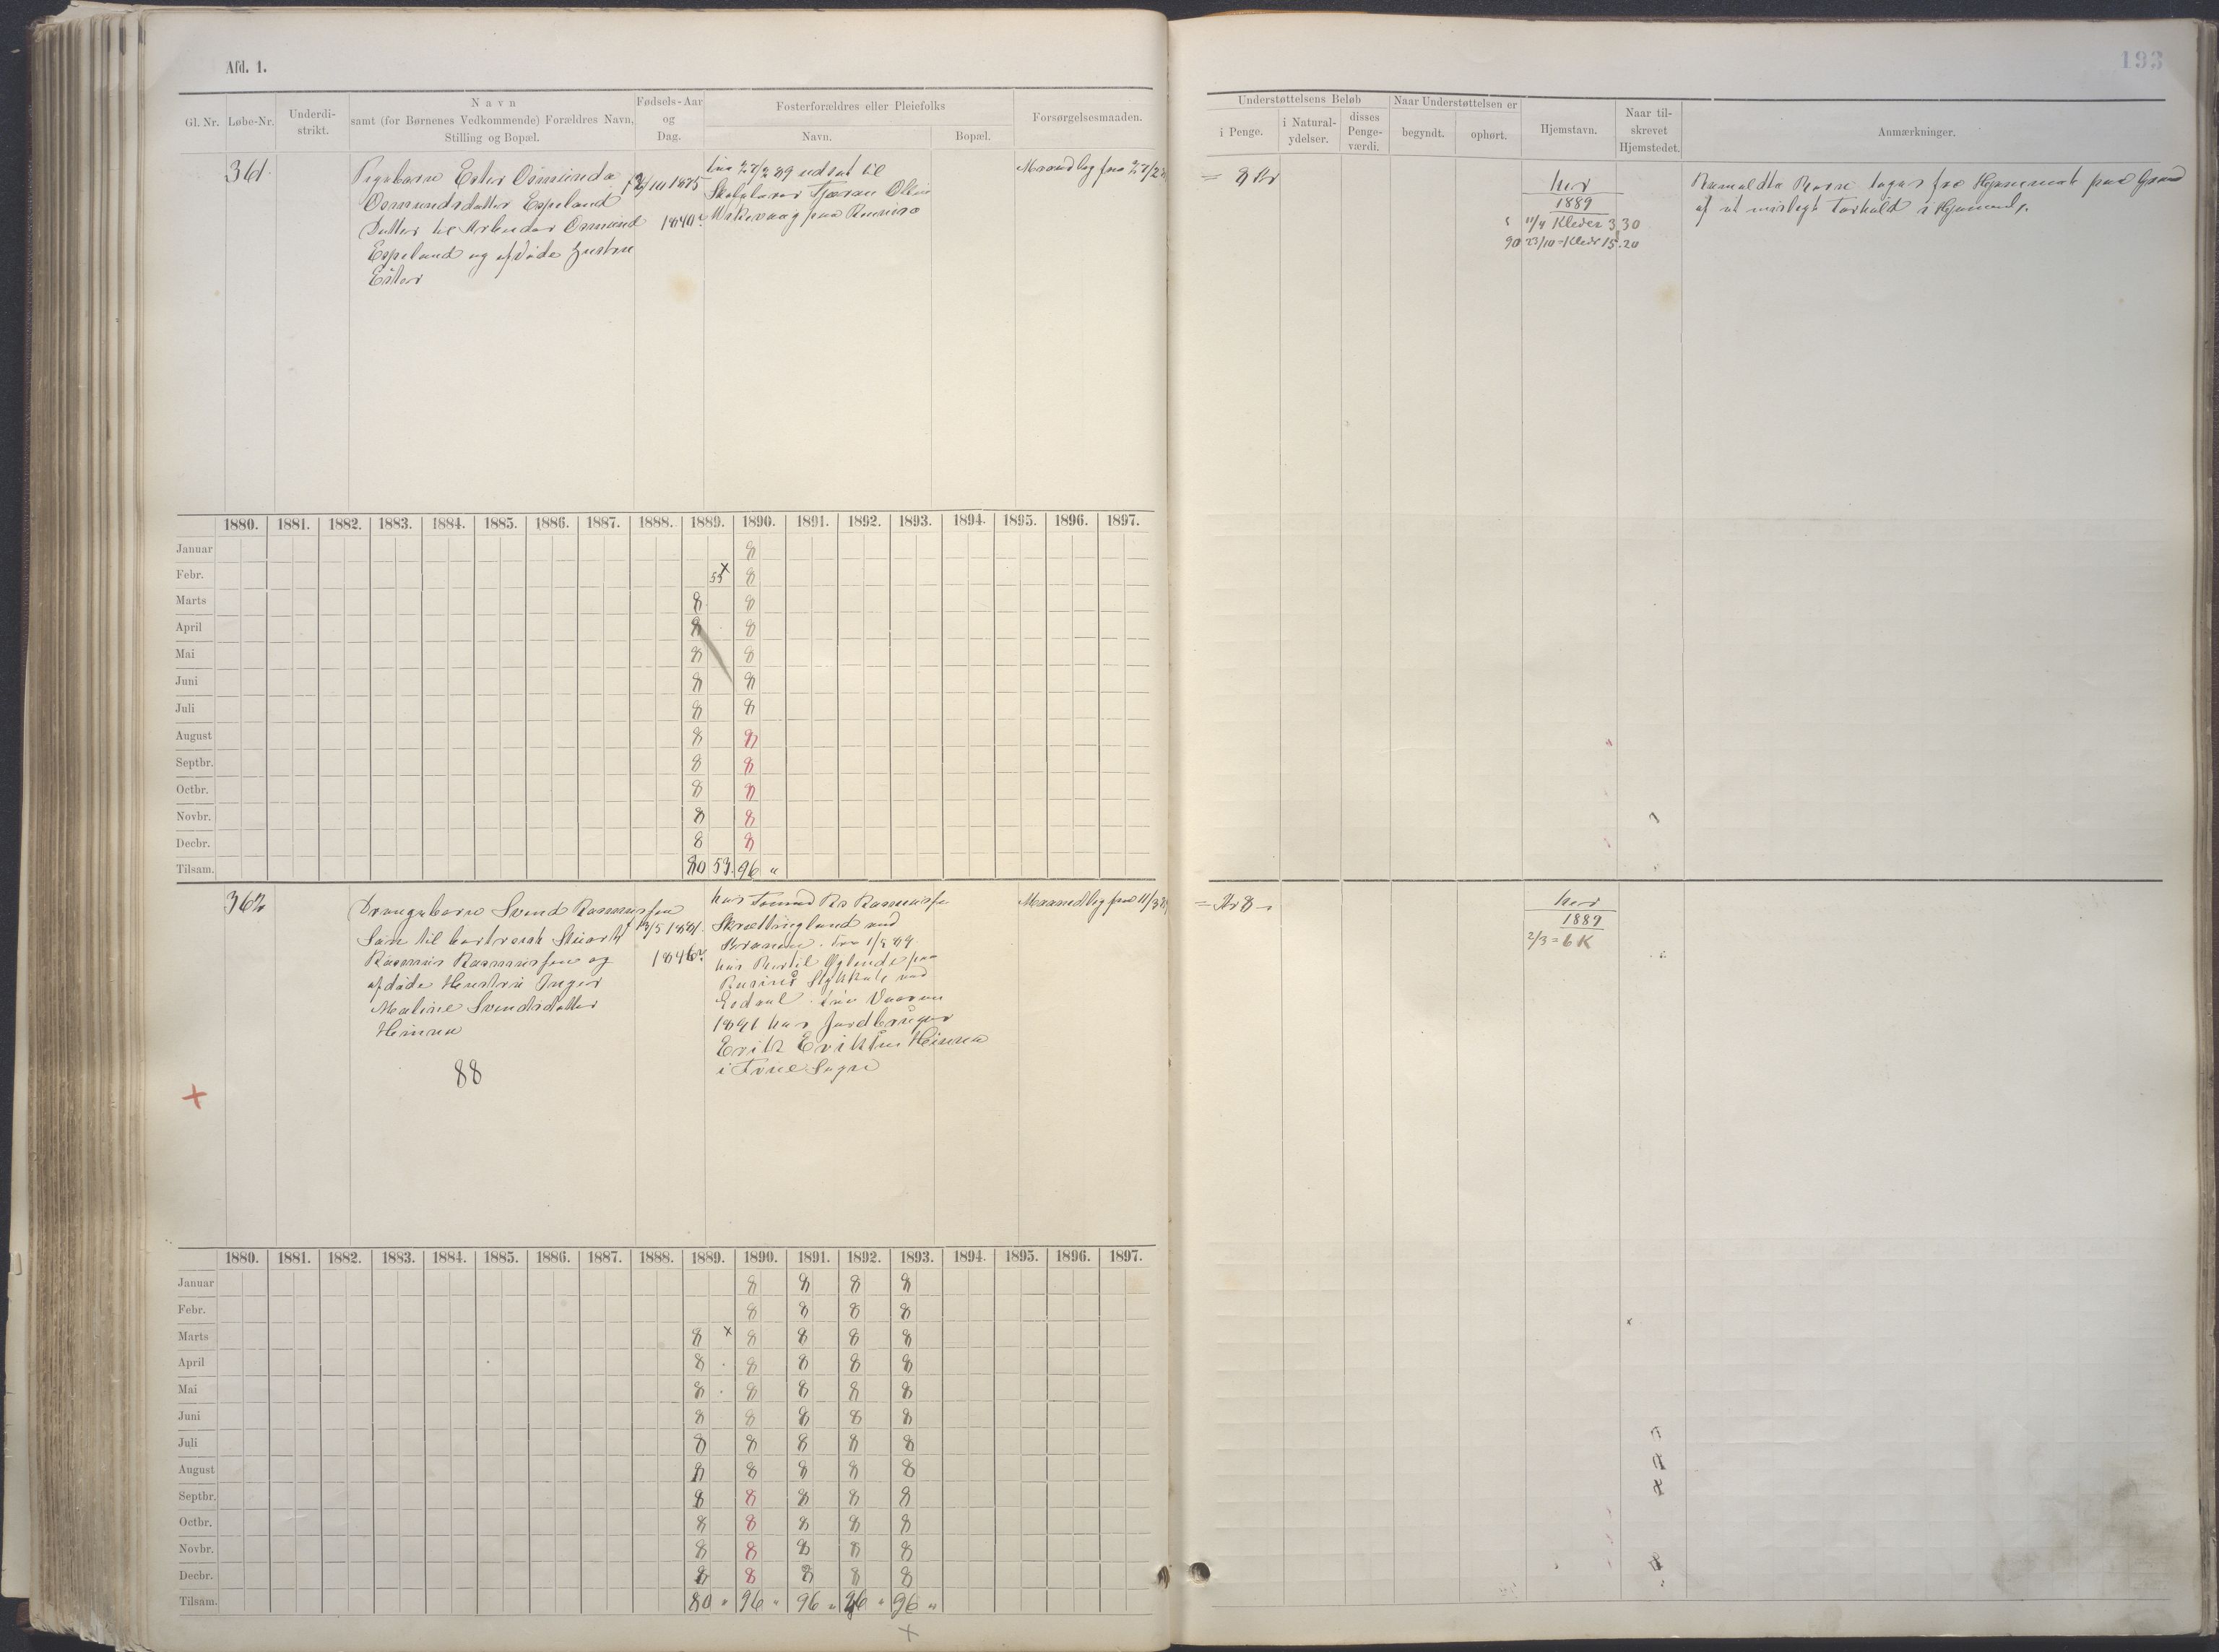 Afd. 1.
193
Gl. Nr.
Løbe-Nr.
Underdi-
strikt.
Navn
samt (for Børnenes Vedkommende) Forældres Navn,
Stilling og Bopæl.
Fødsels-Aar
og
Dag.
Fosterforældres eller Pleiefolks
Navn.
Bopæl.
Forsørgelsesmaaden.
Understøttelsens Beløb
i Penge.
i Natural-
ydelser.
disses
Penge-
værdi.
Naar Understøttelsen er
begyndt.
ophørt.
Hjemstavn.
Naar til-
skrevet
Hjemstedet.
Anmærkninger.
361.
Pigebarn Ester Osmunda
Osmundsdatter Espeland
Datter til Arbeider Osmund
Espeland og afdøde Hustru
Ester
/10 1875
1840
fra 27/2 89 udsat til
Skolelærer
paa Rennesø
Maanedlig fra 27/2 89
= 8 Kr
her
1889
11/4 Klæder 3,30
90 23/10 - Klæder 15.20
Barn tages fra Hjemmet paa Grund
af et Forhold i Hjemmet.
1880. 1881. 1882. 1883. 1884. 1885. 1886. 1887. 1888. 1889. 1890. 1891. 1892. 1893. 1894. 1895. 1896. 1897.
Januar 8
Febr. 53 x 8
Marts 8 8
April 8 8
Mai 8 8
Juni 8 8
Juli 8 8
August 8 8
Septbr. 8 8
Octbr. 8 8
Novbr. 8 8
Decbr. 8 8
Tilsam. 80 53. 96 "
362
Drengebarn Svend Rasmussen
Søn til bortreist
Rasmus Rasmussen og
afdøde Hustru Inger
Maline Svendsdatter
Heinea
88
+
/5 1881.
1846
hos Rasmussen
Skrettingland ved
fra 1/8 89
hos Bertil paa
ved
fra Vaaren
1891 hos Jordbruger
Erik Eriksen
i Sogn
Maanedlig fra 11/3 89
= Kr 8 -
her
1889
2/3 = 6 K
1880. 1881. 1882. 1883. 1884. 1885. 1886. 1887. 1888. 1889. 1890. 1891. 1892. 1893. 1894. 1895. 1896. 1897.
Januar 8 8 8 8
Febr. 8 8 8 8
Marts 8 x 8 8 8 8
April 8 8 8 8 8
Mai 8 8 8 8 8
Juni 8 8 8 8 8
Juli 8 8 8 8 8
August 8 8 8 8 8
Septbr. 8 8 8 8 8
Octbr. 8 8 8 8 8
Novbr. 8 8 8 8 8
Decbr. 8 8 8 8 8
Tilsam. 80 " 96 " 96 " 96 " 96 "
+